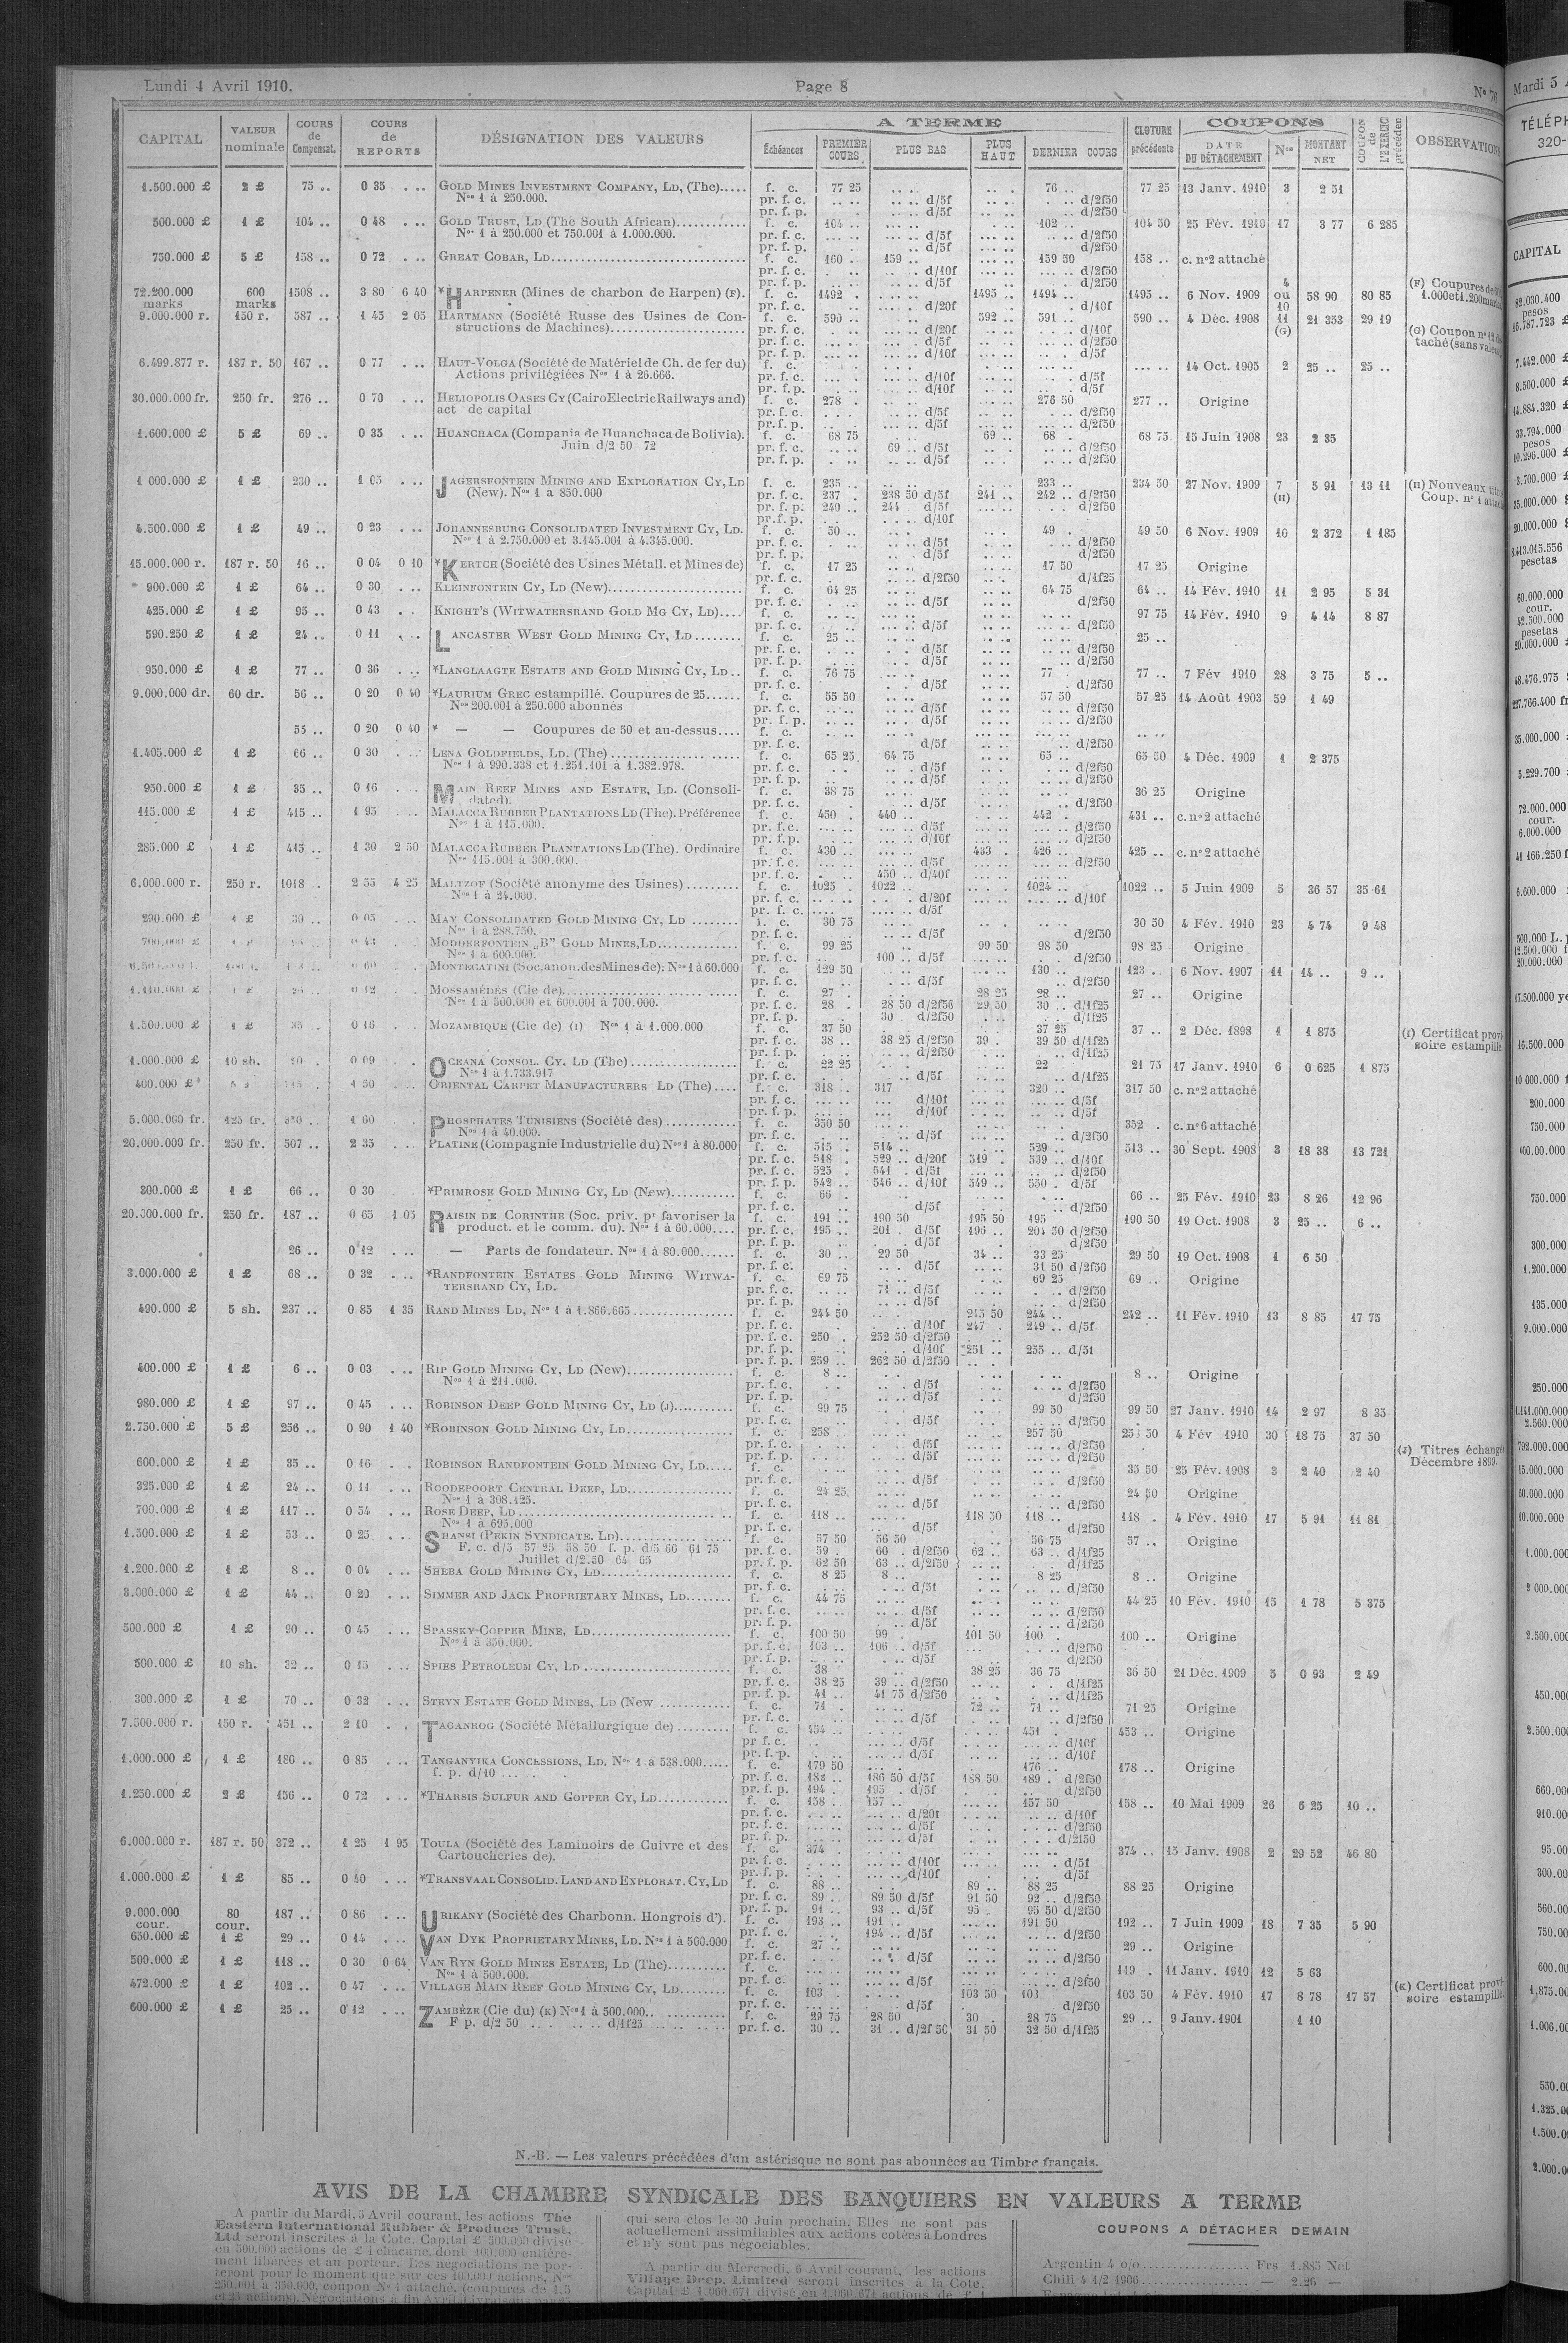 Lundi 4 Avril 1910. Page 8 N° 76
CAPITAL VALEUR nominale COURS de Compensat. COURS de REPORTS DÉSIGNATION DES VALEURS A TERME Échéances PREMIER COURS PLUS BAS PLUS HAUT DERNIER COURS CLOTURE précédente COUPONS DATE DU DÉTACHEMENT Nos MONTANT NET COUPON de L'EXERCICE précédent OBSERVATIONS
1.500.000 £ 2 £ 75 .. 0 35 . .. GOLD MINES INVESTMENT COMPANY, LD, (The)..... f. c. 77 25 76 .. 77 25 13 Janv. 1910 3 2 51
Nos 1 à 250.000. pr. f. c. d/5f d/2f50
pr. f. p. d/5f d/2f50
500.000 £ 1 £ 104 .. 0 48 . .. GOLD TRUST, LD (The South African)............ f. c. 104 .. 102 .. 104 50 25 Fév. 1910 17 3 77 6 285
Nos 1 à 250.000 et 750.001 à 1.000.000. pr. f. c. d/5f d/2f50
pr. f. p. d/5f d/2f50
750.000 £ 5 £ 158 .. 0 72 . .. GREAT COBAR, LD................ f. c. 160 . 159 .. 159 50 158 .. c. n°2 attaché
pr. f. c. d/10f d/2f50
pr. f. p. d/5f d/2f50
72.200.000 marks 600 marks 1508 .. 3 80 6 40 *HARPENER (Mines de charbon de Harpen) (F). f. c. 1492 . 1495 .. 1494 .. 1495 .. 6 Nov. 1909 4 ou 10 58 90 80 85 (F) Coupures de
pr. f. c. d/20f d/10f 1.000 et 1.200
9.000.000 r. 150 r. 587 .. 1 45 2 05 HARTMANN (Société Russe des Usines de Con- f. c. 590 .. 592 .. 591 .. 590 .. 4 Déc. 1908 11 (G) 21 353 29 19 (G) Coupon n° 12
structions de Machines)................ pr. f. c. d/20f d/10f taché (sans
pr. f. c. d/5f d/2f50
pr. f. p. d/10f d/5f
6.499.877 r. 187 r. 50 167 .. 0 77 . .. HAUT-VOLGA (Société de Matériel de Ch. de fer du) f. c. 14 Oct. 1905 2 25 .. 25 ..
Actions privilégiées Nos 1 à 26.666. pr. f. c. d/10f d/5f
pr. f. p. d/10f d/5f
30.000.000 fr. 250 fr. 276 .. 0 70 . .. HELIOPOLIS OASES CY (Cairo Electric Railways and) f. c. 278 . 276 50 277 .. Origine
act de capital pr. f. c. d/5f d/2f50
pr. f. p. d/5f d/2f50
1.600.000 £ 5 £ 69 .. 0 35 . .. HUANCHACA (Compania de Huanchaca de Bolivia). f. c. 68 75 69 .. 68 . 68 75 15 Juin 1908 23 2 35
Juin d/2 50 72 pr. f. c. 69 .. d/5f d/2f50
pr. f. p. d/5f d/2f50
1 000.000 £ 1 £ 230 .. 1 05 . .. JAGERSFONTEIN MINING AND EXPLORATION CY, LD f. c. 235 .. 233 .. 234 50 27 Nov. 1909 7 (H) 5 91 13 11 (H) Nouveaux
(New). Nos 1 à 850.000 pr. f. c. 237 . 238 50 d/5f 241 .. 242 .. d/2f50 Coup. n° 1
pr. f. p. 240 .. 244 d/5f d/2f50
pr. f. p. d/10f
4.500.000 £ 1 £ 49 .. 0 23 . .. JOHANNESBURG CONSOLIDATED INVESTMENT CY, LD. f. c. 50 .. 49 . 49 50 6 Nov. 1909 10 2 372 1 185
Nos 1 à 2.750.000 et 3.145.001 à 4.345.000. pr. f. c. d/5f d/2f50
pr. f. p. d/5f d/2f50
15.000.000 r. 187 r. 50 16 .. 0 04 0 10 *KERTCH (Société des Usines Métall. et Mines de) f. c. 17 25 17 50 17 25 Origine
pr. f. c. d/2f50 d/1f25
900.000 £ 1 £ 64 .. 0 30 . .. KLEINFONTEIN CY, LD (New)................ f. c. 64 25 64 75 64 .. 14 Fév. 1910 11 2 95 5 31
pr. f. c. d/5f d/2f50
425.000 £ 1 £ 95 .. 0 43 . .. KNIGHT'S (WITWATERSRAND GOLD MG CY, LD).... f. c. 97 75 14 Fév. 1910 9 4 44 8 87
pr. f. c. d/5f d/2f50
590.250 £ 1 £ 24 .. 0 11 . .. LANCASTER WEST GOLD MINING CY, LD ........ f. c. 25 .. 25 ..
pr. f. c. d/5f d/2f50
pr. f. p. d/5f d/2f50
950.000 £ 1 £ 77 .. 0 36 . .. *LANGLAAGTE ESTATE AND GOLD MINING CY, LD.. f. c. 76 75 77 . 77 .. 7 Fév 1910 28 3 75 5 ..
pr. f. c. d/5f d/2f50
9.000.000 dr. 60 dr. 56 .. 0 20 0 40 *LAURIUM GREC estampillé. Coupures de 25...... f. c. 55 50 57 50 57 25 14 Août 1903 59 1 49
Nos 200.001 à 250.000 abonnés pr. f. c. d/5f d/2f50
pr. f. p. d/5f d/2f50
55 .. 0 20 0 40 * — — Coupures de 50 et au-dessus.... f. c.
pr. f. c. d/5f d/2f50
1.405.000 £ 1 £ 66 .. 0 30 . .. LENA GOLDFIELDS, LD. (The) ................ f. c. 65 25 64 75 65 .. 65 50 4 Déc. 1909 1 2 375
Nos 1 à 990.338 et 1.251.101 à 1.382.978. pr. f. c. d/5f d/2f50
pr. f. p. d/5f d/2f50
950.000 £ 1 £ 35 .. 0 16 . .. MAIN REEF MINES AND ESTATE, LD. (Consoli- f. c. 38 75 36 25 Origine
dated). pr. f. c. d/5f d/2f50
115.000 £ 1 £ 415 .. 1 95 . .. MALACCA RUBBER PLANTATIONS LD (The). Préférence f. c. 450 . 440 .. 442 . 431 .. c. n°2 attaché
Nos 1 à 115.000. pr. f. c. d/5f d/2f50
pr. f. p. d/10f d/2f50
285.000 £ 1 £ 415 .. 1 30 2 50 MALACCA RUBBER PLANTATIONS LD (The). Ordinaire f. c. 430 .. 433 . 426 .. 425 .. c. n°2 attaché
Nos 115.001 à 300.000. pr. f. c. d/5f d/2f50
pr. f. c. 450 .. d/10f
6.000.000 r. 250 r. 1018 .. 2 55 4 25 MALTZOF (Société anonyme des Usines) ......... f. c. 1025 . 1022 .. 1024 .. 1022 .. 5 Juin 1909 5 36 57 35 61
Nos 1 à 24.000. pr. f. c. d/20f d/10f
pr. f. c. d/5f
290.000 £ 1 £ 30 .. 0 05 . .. MAY CONSOLIDATED GOLD MINING CY, LD ........ f. c. 30 75 30 50 4 Fév. 1910 23 4 74 9 48
Nos 1 à 288.750. pr. f. c. d/5f d/2f50
700.000 £ MODDERFONTEIN „B" GOLD MINES, LD.............. f. c. 99 25 99 50 98 50 98 25 Origine
Nos 1 à 600.000. pr. f. c. 100 .. d/5f d/2f50
MONTECATINI (Soc. anon. des Mines de): Nos 1 à 60.000 f. c. 129 50 130 .. 123 .. 6 Nov. 1907 11 14 .. 9 ..
pr. f. c. d/5f d/2f50
MOSSAMÉDÈS (Cie de)................ f. c. 27 . 28 25 28 .. 27 .. Origine
Nos 1 à 500.000 et 600.001 à 700.000. pr. f. c. 28 . 28 50 d/2f50 29 50 30 .. d/1f25
pr. f. p. 30 d/2f50 d/1f25
1.500.000 £ 1 £ 35 .. 0 16 . .. MOZAMBIQUE (Cie de) (I) Nos 1 à 1.000.000 f. c. 37 50 37 25 37 .. 2 Déc. 1898 1 1 875 (I) Certificat provi-
pr. f. c. 38 .. 38 25 d/2f50 39 . 39 50 d/1f25 soire estampillé.
pr. f. p. d/2f50 d/1f25
1.000.000 £ 10 sh. 20 . 0 09 . .. OCEANA CONSOL. CY. LD (The)................ f. c. 22 25 22 21 75 17 Janv. 1910 6 0 625 1 875
Nos 1 à 1.733.917 pr. f. c. d/5f d/1f25
400.000 £ 1 50 . .. ORIENTAL CARPET MANUFACTURERS LD (The).... f. c. 318 .. 317 320 .. 317 50 c. n°2 attaché
pr. f. c. d/10f d/5f
pr. f. p. d/10f d/5f
5.000.000 fr. 125 fr. 350 .. 1 60 PHOSPHATES TUNISIENS (Société des) ........... f. c. 350 50 352 . c. n°6 attaché
Nos 1 à 40.000. pr. f. c. d/5f d/2f50
20.000.000 fr. 250 fr. 507 .. 2 35 . .. PLATINE (Compagnie Industrielle du) Nos 1 à 80.000 f. c. 515 .. 514 .. 529 .. 513 .. 30 Sept. 1908 3 18 38 13 721
pr. f. c. 518 . 529 .. d/20f 519 . 539 .. d/10f
pr. f. c. 525 . 541 . d/5f d/2f50
pr. f. p. 542 .. 546 .. d/10f 549 .. 550 . d/5f
300.000 £ 1 £ 66 .. 0 30 *PRIMROSE GOLD MINING CY, LD (New)........... f. c. 66 . 66 .. 25 Fév. 1910 23 8 26 12 96
pr. f. c. d/5f d/2f50
20.000.000 fr. 250 fr. 187 .. 0 65 1 05 RAISIN DE CORINTHE (Soc. priv. pr favoriser la f. c. 191 .. 190 50 195 50 195 190 50 19 Oct. 1908 3 25 .. 6 ..
product. et le comm. du). Nos 1 à 60.000.... pr. f. c. 195 .. 201 . d/5f 196 .. 201 50 d/2f50
pr. f. p. d/5f d/2f50
26 .. 0 12 . .. — Parts de fondateur. Nos 1 à 80.000...... f. c. 30 .. 29 50 34 .. 33 25 29 50 19 Oct. 1908 1 6 50
pr. f. c. d/5f 31 50 d/2f50
3.000.000 £ 1 £ 68 .. 0 32 . .. *RANDFONTEIN ESTATES GOLD MINING WITWA- f. c. 69 75 69 25 69 .. Origine
TERSRAND CY, LD. pr. f. c. 71 .. d/5f d/2f50
pr. f. p. d/5f d/2f50
490.000 £ 5 sh. 237 .. 0 85 1 35 RAND MINES LD, Nos 1 à 1.866.665 ............. f. c. 244 50 245 50 244 .. 242 .. 11 Fév. 1910 13 8 85 17 75
pr. f. c. d/10f 247 . 249 .. d/5f
pr. f. c. 250 . 252 50 d/2f50
pr. f. p. d/10f 251 .. 255 .. d/5f
pr. f. p. 259 .. 262 50 d/2f50
400.000 £ 1 £ 6 .. 0 03 . .. RIP GOLD MINING CY, LD (New)................ f. c. 8 .. 8 .. Origine
Nos 1 à 211.000. pr. f. c. d/5f d/2f50
pr. f. p. d/5f d/2f50
980.000 £ 1 £ 97 .. 0 45 . .. ROBINSON DEEP GOLD MINING CY, LD (J).......... f. c. 99 75 99 50 99 50 27 Janv. 1910 14 2 97 8 35
pr. f. c. d/5f d/2f50
2.750.000 £ 5 £ 256 .. 0 90 1 40 *ROBINSON GOLD MINING CY, LD................ f. c. 258 257 50 50 4 Fév 1910 30 18 75 37 50
pr. f. c. d/5f d/2f50 (J) Titres échangés
pr. f. p. d/5f d/2f50 Décembre 1899.
600.000 £ 1 £ 35 .. 0 16 . . ROBINSON RANDFONTEIN GOLD MINING CY, LD..... f. c. 35 50 25 Fév. 1908 3 2 40 2 40
pr. f. c. d/5f d/2f50
325.000 £ 1 £ 24 .. 0 11 . .. ROODEPOORT CENTRAL DEEP, LD................ f. c. 24 25 24 50 Origine
Nos 1 à 308.125. pr. f. c. d/5f d/2f50
700.000 £ 1 £ 117 .. 0 54 ROSE DEEP, LD................ f. c. 118 .. 118 50 118 .. 118 . 4 Fév. 1910 17 5 91 11 81
Nos 1 à 695.000 pr. f. c. d/5f d/2f50
1.500.000 £ 1 £ 53 .. 0 25 . .. SHANSI (PEKIN SYNDICATE, LD)................ f. c. 57 50 56 50 56 75 57 .. Origine
F. c. d/5 57 25 58 50 f. p. d/5 60 61 75 pr. f. c. 59 . 60 . d/2f50 62 .. 63 .. d/1f25
Juillet d/2.50 64 65 pr. f. p. 62 50 63 .. d/2f50 d/1f25
1.200.000 £ 1 £ 8 .. 0 04 . .. SHEBA GOLD MINING CY, LD................ f. c. 8 25 8 .. 8 25 8 .. Origine
pr. f. c. d/5f d/2f50
3.000.000 £ 1 £ 44 .. 0 20 . .. SIMMER AND JACK PROPRIETARY MINES, LD........ f. c. 44 75 44 25 10 Fév. 1910 15 1 78 5 375
pr. f. c. d/5f d/2f50
pr. f. p. d/5f d/2f50
500.000 £ 1 £ 90 .. 0 45 . .. SPASSKY-COPPER MINE, LD................ f. c. 100 50 99 . 101 50 100 . 100 .. Origine
Nos 1 à 350.000. pr. f. c. 103 .. 106 .. d/5f d/2f50
pr. f. p. d/5f d/2f50
500.000 £ 10 sh. 32 .. 0 15 . .. SPIES PETROLEUM CY, LD ................ f. c. 38 38 25 36 75 36 50 21 Déc. 1909 5 0 93 2 49
pr. f. c. 38 25 39 .. d/2f50 d/1f25
pr. f. p. 41 .. 41 75 d/2f50 d/1f25
300.000 £ 1 £ 70 .. 0 32 . .. STEYN ESTATE GOLD MINES, LD (New ............ f. c. 71 . 72 .. 71 .. 71 25 Origine
pr. f. c. d/5f d/2f50
7.500.000 r. 150 r. 451 .. 2 10 . . TAGANROG (Société Métallurgique de) ......... f. c. 454 .. 451 . 453 .. Origine
pr. f. c. d/5f d/10f
pr. f. p. d/5f d/10f
1.000.000 £ 1 £ 186 .. 0 85 . .. TANGANYIKA CONCESSIONS, LD. Nos 1 à 538.000..... f. c. 179 50 176 .. 178 .. Origine
f. p. d/10 ... pr. f. c. 182 .. 186 50 d/5f 188 50 189 . d/2f50
pr. f. p. 194 . 195 . d/5f d/2f50
1.250.000 £ 2 £ 156 .. 0 72 . .. *THARSIS SULFUR AND GOPPER CY, LD............ f. c. 158 . 157 .. 157 50 158 .. 10 Mai 1909 26 6 25 10 ..
pr. f. c. d/20f d/10f
pr. f. c. d/5f d/2f50
pr. f. p. d/5f d/2f50
6.000.000 r. 187 r. 50 372 .. 1 25 1 95 TOULA (Société des Laminoirs de Cuivre et des f. c. 374 . 374 .. 15 Janv. 1908 2 29 52 46 80
Cartoucheries de). pr. f. c. d/10f d/5f
pr. f. p. d/10f d/5f
1.000.000 £ 1 £ 85 .. 0 40 . .. *TRANSVAAL CONSOLID. LAND AND EXPLORAT. CY, LD f. c. 88 .. 89 .. 88 25 88 25 Origine
pr. f. c. 89 . 89 50 d/5f 91 50 92 .. d/2f50
pr. f. p. 91 .. 93 .. d/5f 95 . 95 50 d/2f50
9.000.000 cour. 80 cour. 187 .. 0 86 . .. URIKANY (Société des Charbonn. Hongrois d'). f. c. 193 .. 191 .. 191 50 192 .. 7 Juin 1909 18 7 35 5 90
pr. f. c. 194 .. d/5f d/2f50
650.000 £ 1 £ 29 .. 0 14 . .. VAN DYK PROPRIETARY MINES, LD. Nos 1 à 500.000 f. c. 27 .. 29 .. Origine
pr. f. c. d/5f d/2f50
500.000 £ 1 £ 118 .. 0 30 0 64 VAN RYN GOLD MINES ESTATE, LD (The).......... f. c. 119 . 11 Janv. 1910 12 5 63
Nos 1 à 500.000. pr. f. c. d/5f d/2f50
472.000 £ 1 £ 102 .. 0 47 . .. VILLAGE MAIN REEF GOLD MINING CY, LD........ f. c. 103 . 103 50 103 103 50 4 Fév. 1910 17 8 78 17 57 (K) Certificat provi-
pr. f. c. d/5f d/2f50 soire estampillé.
600.000 £ 1 £ 25 .. 0 12 . .. ZAMBÈZE (Cie du) (K) Nos 1 à 500.000.. f. c. 29 75 28 50 30 . 28 75 29 .. 9 Janv. 1901 1 10
F p. d/2 50 .. d/1f25 pr. f. c. 30 .. 31 .. d/2f50 31 50 32 50 d/1f25
N.-B. — Les valeurs précédées d'un astérisque ne sont pas abonnées au Timbre français.
AVIS DE LA CHAMBRE SYNDICALE DES BANQUIERS EN VALEURS A TERME
A partir du Mardi, 5 Avril courant, les actions The
Eastern International Rubber & Produce Trust,
Ltd seront inscrites à la Cote. Capital £ 500.000 divisé
en 500.000 actions de £ 1 chacune, dont 400.000 entière-
ment libérées et au porteur. Les négociations ne por-
teront pour le moment que sur ces 100.000 actions. Nos
250.001 à 350.000, coupon N° 1 attaché. (coupures de 1.5
et 25 actions). Négociations à fin Avril
qui sera clos le 30 Juin prochain. Elles ne sont pas
actuellement assimilables aux actions cotées à Londres
et n'y sont pas négociables.
A partir du Mercredi, 6 Avril courant, les actions
Village Deep, Limited seront inscrites à la Cote.
Capital £ 1.060.671 divisé en 1.060.671 actions de £ 1
COUPONS A DÉTACHER DEMAIN
Argentin 4 o/o................ Frs 1.885 Net
Chili 4 1/2 1906................ — 2.26 —
Mardi 5
TÉLÉPH
320-
CAPITAL
82.030.400
pesos
16.787.723 £
7.442.000 £
8.500.000 £
14.884.320 £
33.794.000
pesos
10.296.000 £
3.700.000 £
35.000.000
20.000.000
8.413.015.556
pesetas
60.000.000
cour.
42.500.000
pesetas
20.000.000
48.476.975
227.766.400 fr
35.000.000
5.229.700
72.000.000
cour.
6.000.000
41 166.250 f
6.600.000
500.000 L.
12.500.000
20.000.000
17.500.000 ye
16.500.000
10 000.000
200.000
750.000
100.00.000
750.000
300.000
1.200.000
135.000
9.000.000
250.000
1.141.000.000
2.560.000
792.000.000
15.000.000
60.000.000
10.000.000
1.000.000
2 000.000
2.500.000
450.000
2.500.000
660.00
910.00
95.00
300.00
560.00
750.00
600.00
1.875.00
1.006.00
550.00
1.325.0
1.500.0
2.000.0